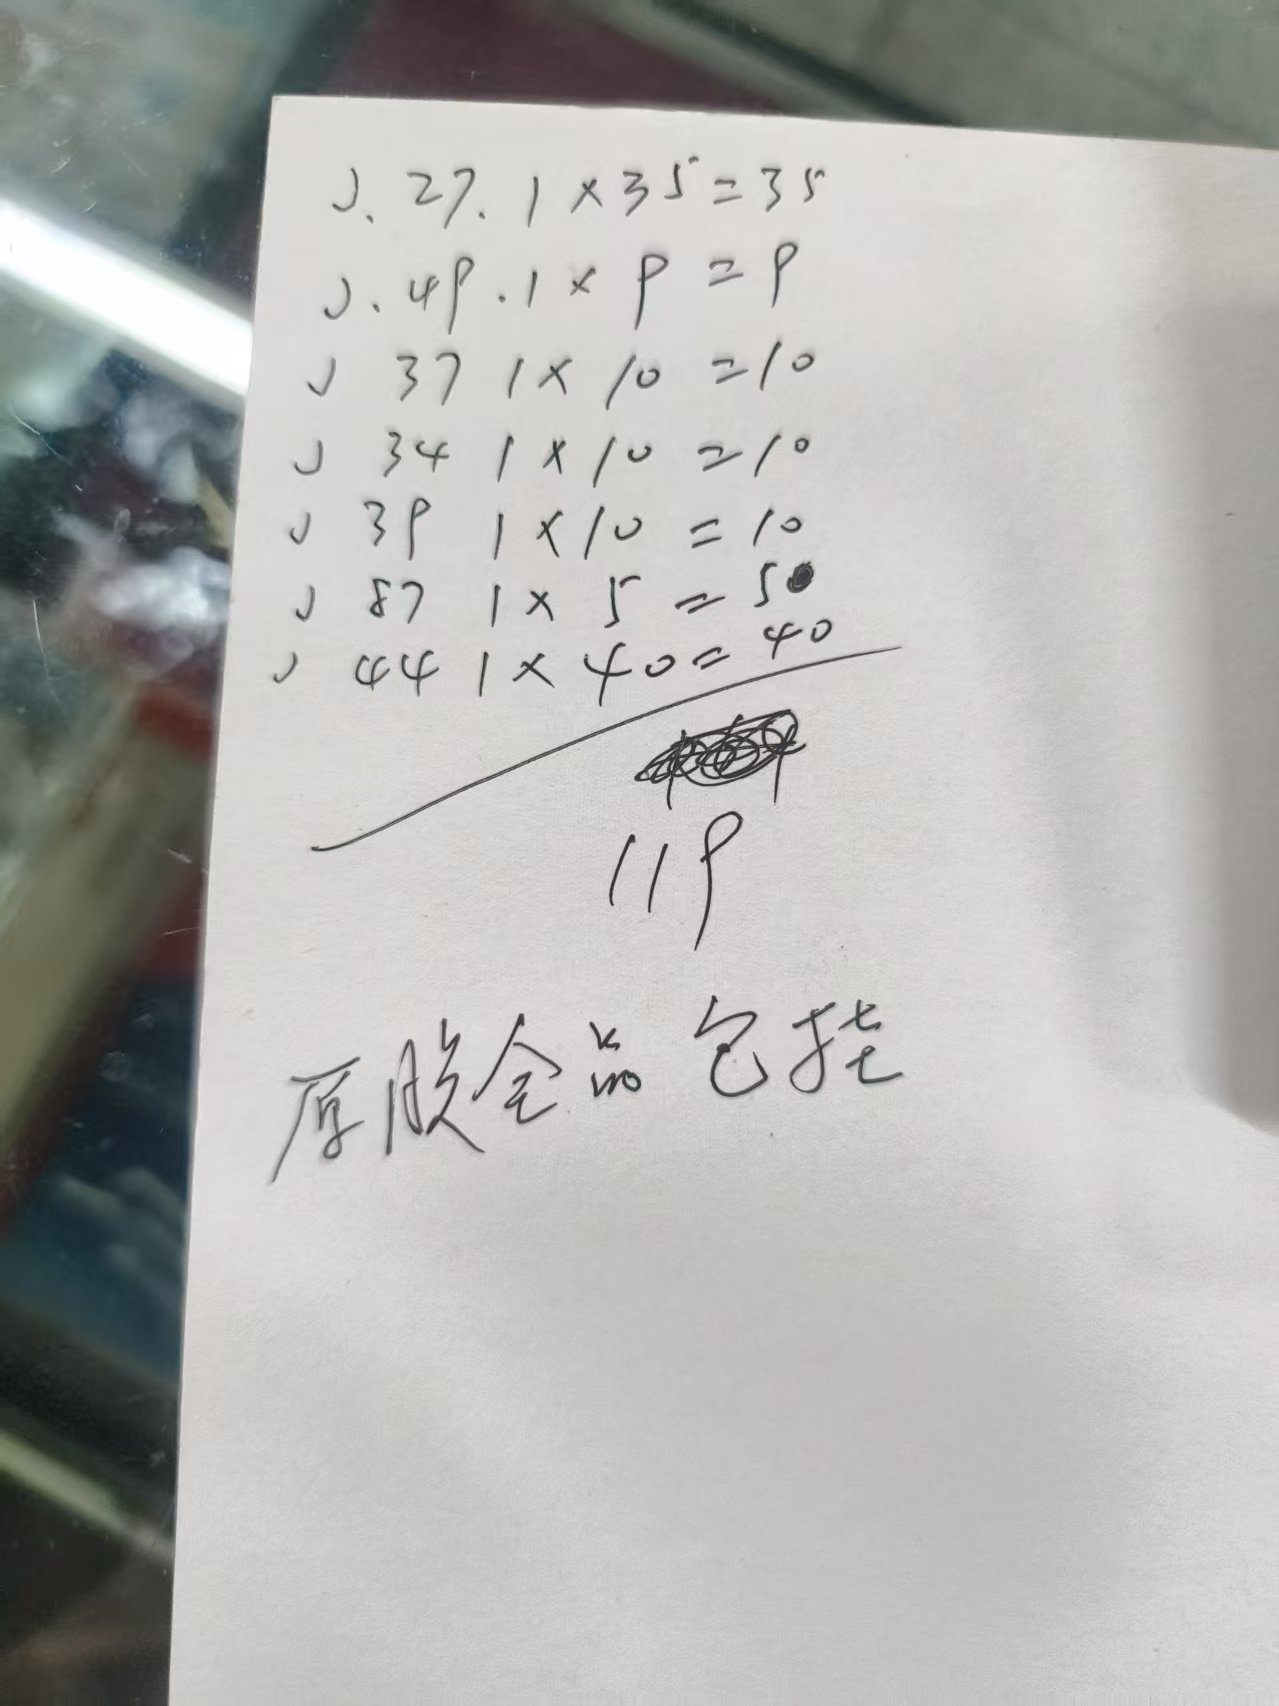 J. 27. 1×35=35
J. 49. 1×9=9
J 37 1×10=10
J 34 1×10=10
J 39 1×10=10
J 87 1×5=5
J 44 1×40=40
119
原胶全品包挂